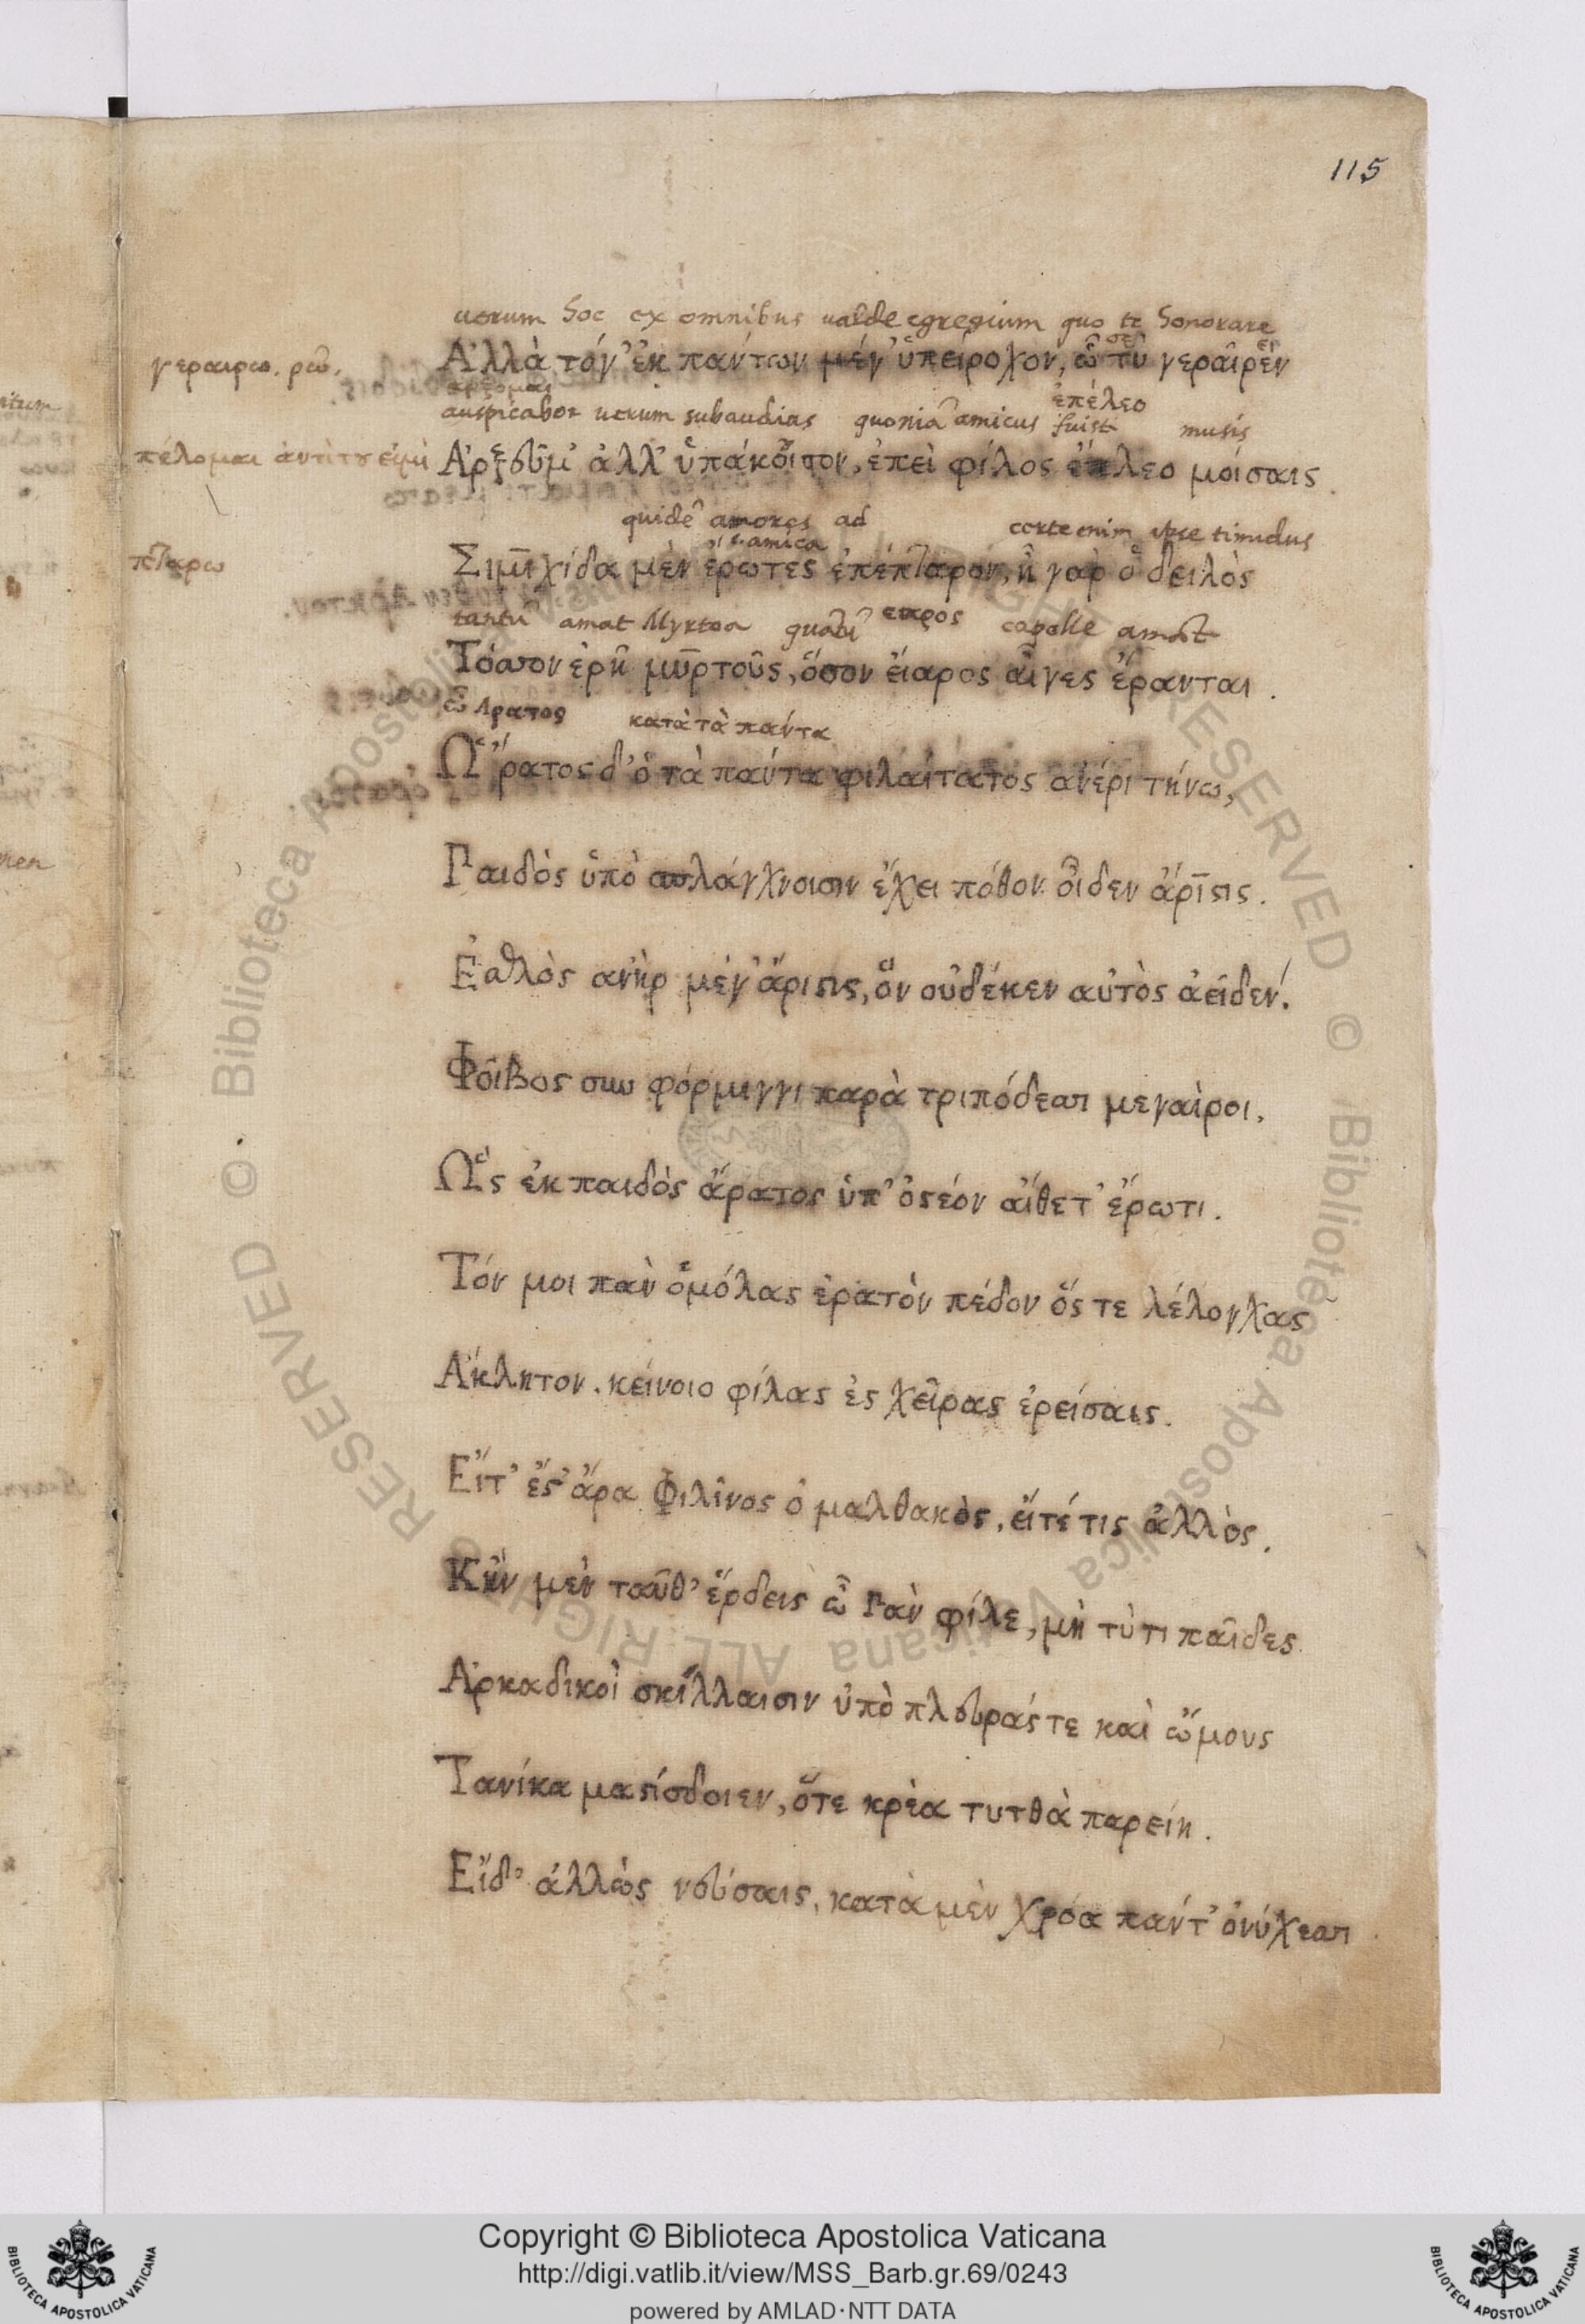 115
uerum hoc ex omnibus ualde egregium quo te honorare
γεραιρω. ρῶ.
σε
Ἀλλὰ τόγ' ἐκ πάντων μέγ' ὑπείροχον, ὧ τὺ γεραῖρεν
αρξομαι
ἐπέλεο
auspicabor uerum subaudias quoniã amicus fuisti musis
πέλομαι ἀντὶ τοῦ εἰμὶ
Ἀρξεῦμ' ἀλλ' ὑπάκοισον, ἐπεὶ φίλος ἔπλεο μοίσαις.
quidẽ amores ad certe enim ipse timidus
amica
πταρω
Σιμιχίδα μὲν ἔρωτες ἐπέπταρον, ἦ γὰρ ὁ δειλὸς
tantũ amat Myrtoa quatũ εαρος capelle amãt
Τόσσον ἐρῇ μυρτοῦς, ὅσον εἴαρος αἶγες ἔρανται.
ὁ Αρατος κατὰ τὰ πάντα
Ὥρατος δ' ὁ τὰ πάντα φιλαίτατος ἀνέρι τήνω,
Παιδὸς ὑπὸ σπλάγχνοισιν ἔχει πόθον. οἶδεν ἄριστις.
Ἐσθλὸς ἀνὴρ μέγ' ἄριστις, ὃν οὐδέκεν αὐτὸς ἀείδεν!
Φοῖβος σὺν φόρμιγγι παρὰ τριπόδεσσι μεγαίροι.
Ὡς ἐκ παιδὸς ἄρατος ὑπ' ὀστέον αἴθετ' ἔρωτι.
Τόν μοι πὰν ὁμόλας ἐρατὸν πέδον ὅς τε λέλογχας
Ἄκλητον. κείνοιο φίλας ἐς χεῖρας ἐρείσαις.
Εἴτ' ἔστ' ἄρα Φιλῖνος ὁ μαλθακὸς, εἴτέ τις ἀλλὸς.
Κἢν μὲν ταῦθ' ἔρδεις ὦ Πὰν φίλε, μὴ τὺ τι παῖδες
Ἀρκαδικοὶ σκίλλαισιν ὑπὸ πλευράς τε καὶ ὤμους
Τανίκα μαστίσδοιεν, ὅτε κρέα τυτθὰ παρείη.
Εἴδ' ἀλλὼς νεύσαις, κατὰ μὲν χρόα πάντ' ὀνύχεσσι
© Biblioteca Apostolica Vaticana ALL RIGHTS RESERVED
Copyright © Biblioteca Apostolica Vaticana
http://digi.vatlib.it/view/MSS_Barb.gr.69/0243
powered by AMLAD·NTT DATA
BIBLIOTECA APOSTOLICA VATICANA
BIBLIOTECA APOSTOLICA VATICANA